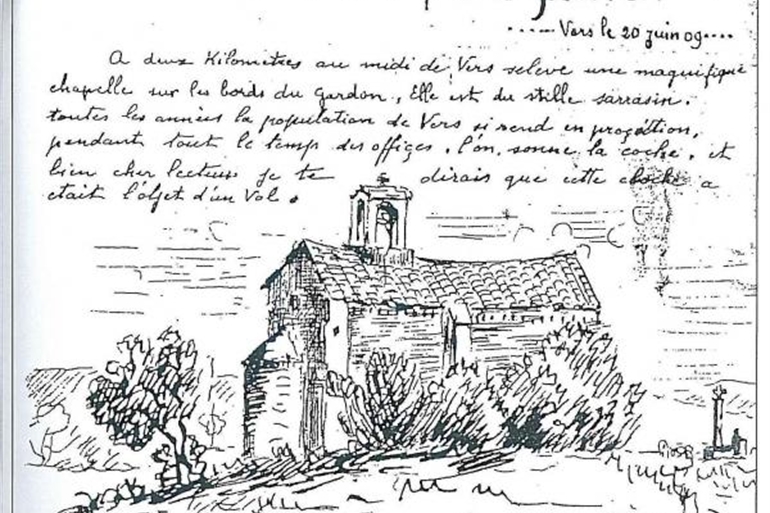 Vers le 20 juin 09
A deux Kilometres au midi de Vers seleve une magnifique
chapelle sur les bords du gardon, Elle est du stille sarrasin.
toutes les années la population de Vers si rend en proçéttion,
pendant tout le temps des offiçes, l'on, sonne la coche, et
bien cher lecteur je te dirais que cette cloche a
etait l'objet d'un Vol.